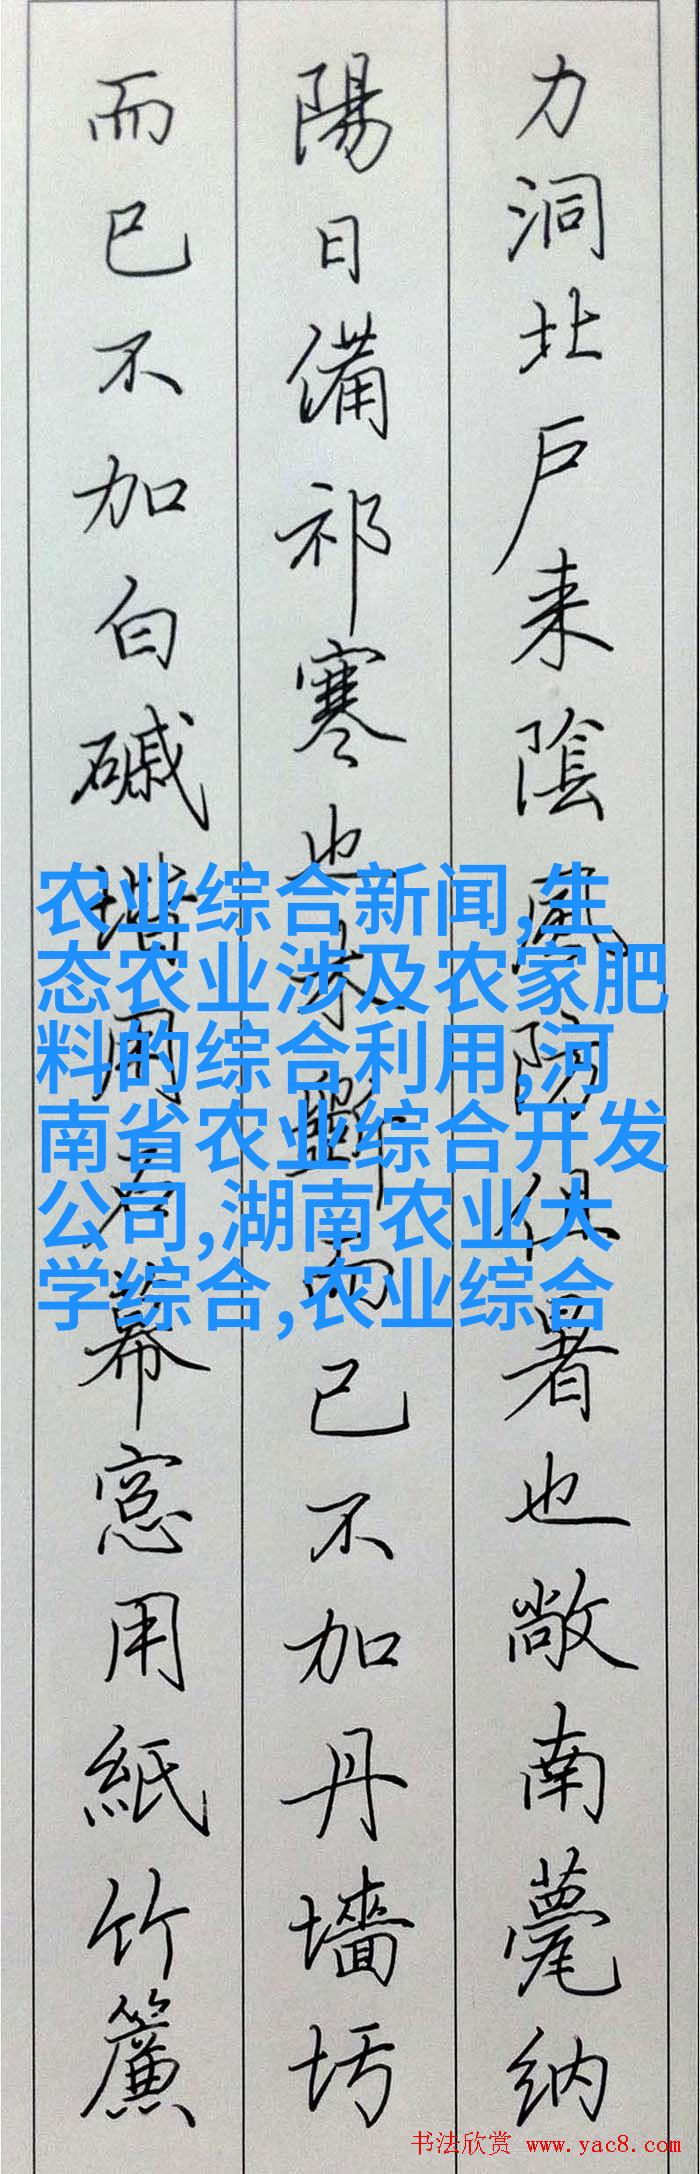 力洞北户来陰風防徂暑也敞南甍纳
陽日備祁寒也木斲而已不加丹墻圬
而已不加白磩堦用石幕窓用紙竹簾
农业综合新闻,生
态农业涉及农家肥
料的综合利用,河
南省农业综合开发
公司,湖南农业大
学综合,农业综合
书法欣赏 www.yac8.com